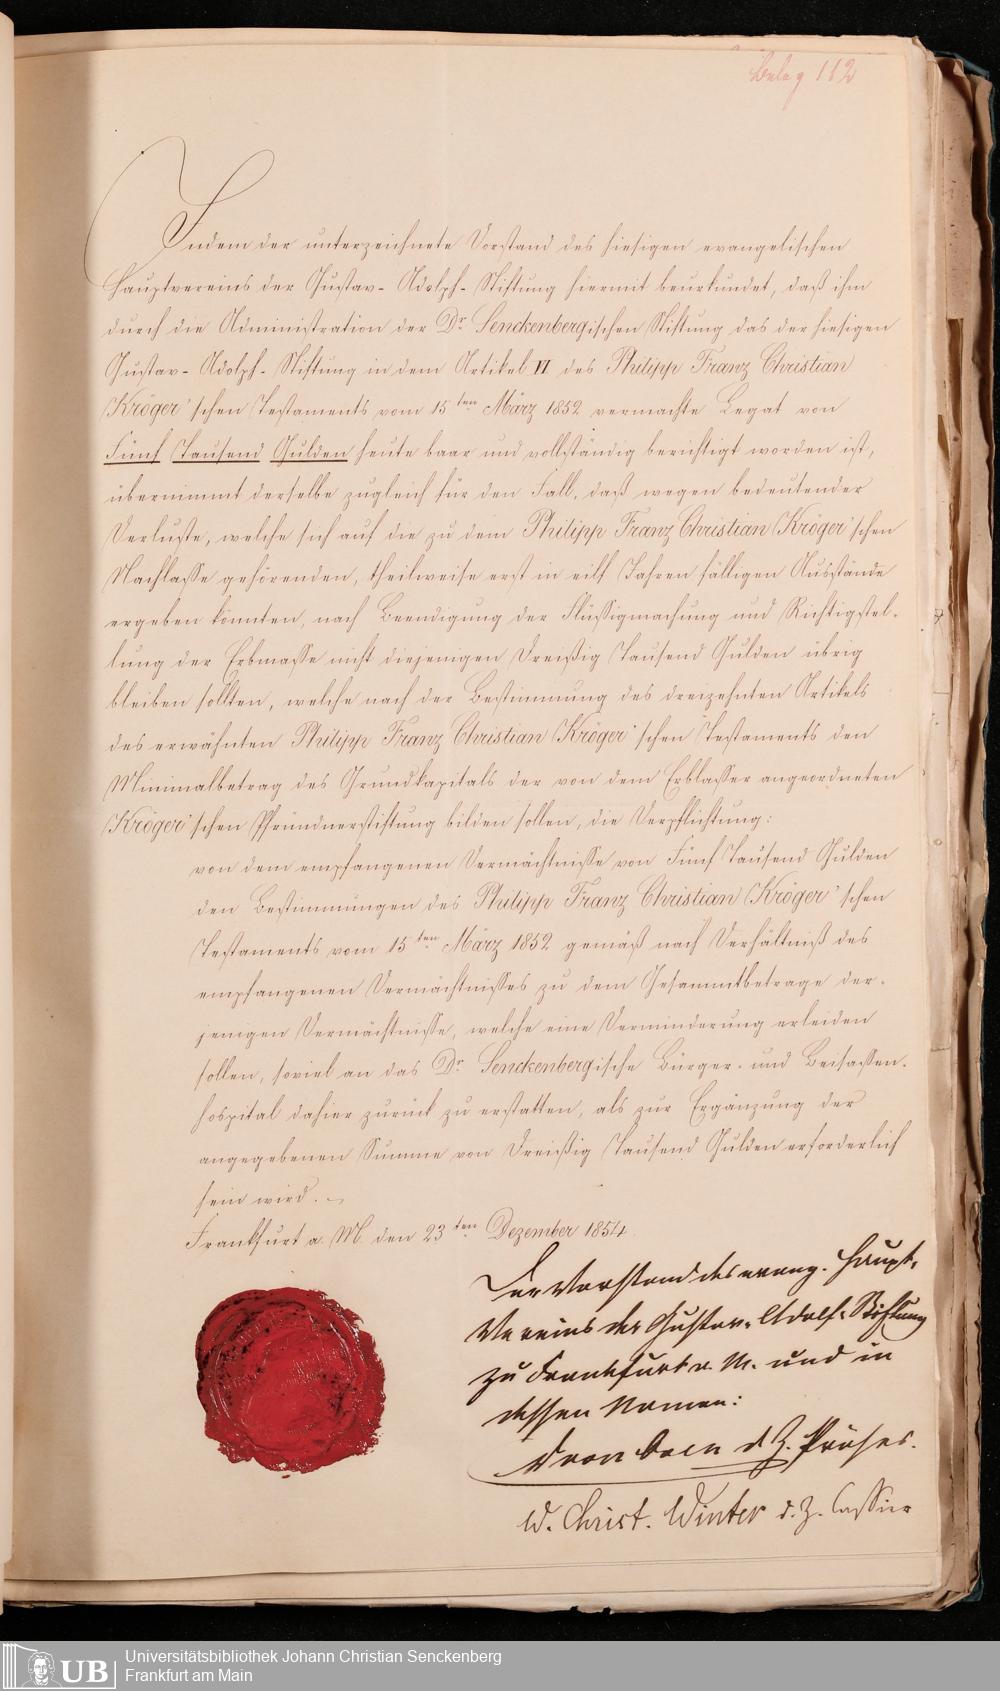 Beleg 112
Indem der unterzeichnete Vorstand des hiesigen evangelischen
Hauptvereins der Gustav-Adolph-Stiftung hiermit beurkundet, daß ihm
durch die Administration der Dr. Senckenbergischen Stiftung das der hiesigen
Gustav-Adolph-Stiftung in dem Artikel VI des Philipp Franz Christian
Kröger'schen Testaments vom 15ten März 1852 vermachte Legat von
Fünf Tausend Gulden heute baar und vollständig berichtigt worden ist,
übernimmt derselbe zugleich für den Fall, daß wegen bedeutender
Verluste, welche sich auf die zu dem Philipp Franz Christian Kröger'schen
Nachlasse gehörenden, theilweise erst in eilf Jahren fälligen Ausstände
ergeben könnten, nach Beendigung der Flüssigmachung und Richtigstel-
lung der Erbmasse nicht diejenigen Dreißig Tausend Gulden übrig
bleiben sollten, welche nach der Bestimmung des dreizehnten Artikels
des erwähnten Philipp Franz Christian Kröger'schen Testaments den
Minimalbetrag des Grundkapitals der von dem Erblasser angeordneten
Kröger'schen Pfründnerstiftung bilden sollen, die Verpflichtung:
von dem empfangenen Vermächtnisse von Fünf Tausend Gulden
den Bestimmungen des Philipp Franz Christian Kröger'schen
Testaments vom 15ten März 1852 gemäß nach Verhältniß des
empfangenen Vermächtnisses zu dem Gesammtbetrage der-
jenigen Vermächtnisse, welche eine Verminderung erleiden
sollen, soviel an das Dr. Senckenbergische Bürger- und Beisassen-
hospital dahier zurück zu erstatten, als zur Ergänzung der
angegebenen Summe von Dreißig Tausend Gulden erforderlich
sein wird.
Frankfurt a. M. den 23ten Dezember 1854.
Der Vorstand des evang. Haupt-
Vereins der Gustav-Adolf-Stiftung
zu Frankfurt a. M. und in
dessen Namen:
d. Z. Präses.
W. Christ. Winter d. Z. Cassier
UB
Universitätsbibliothek Johann Christian Senckenberg
Frankfurt am Main